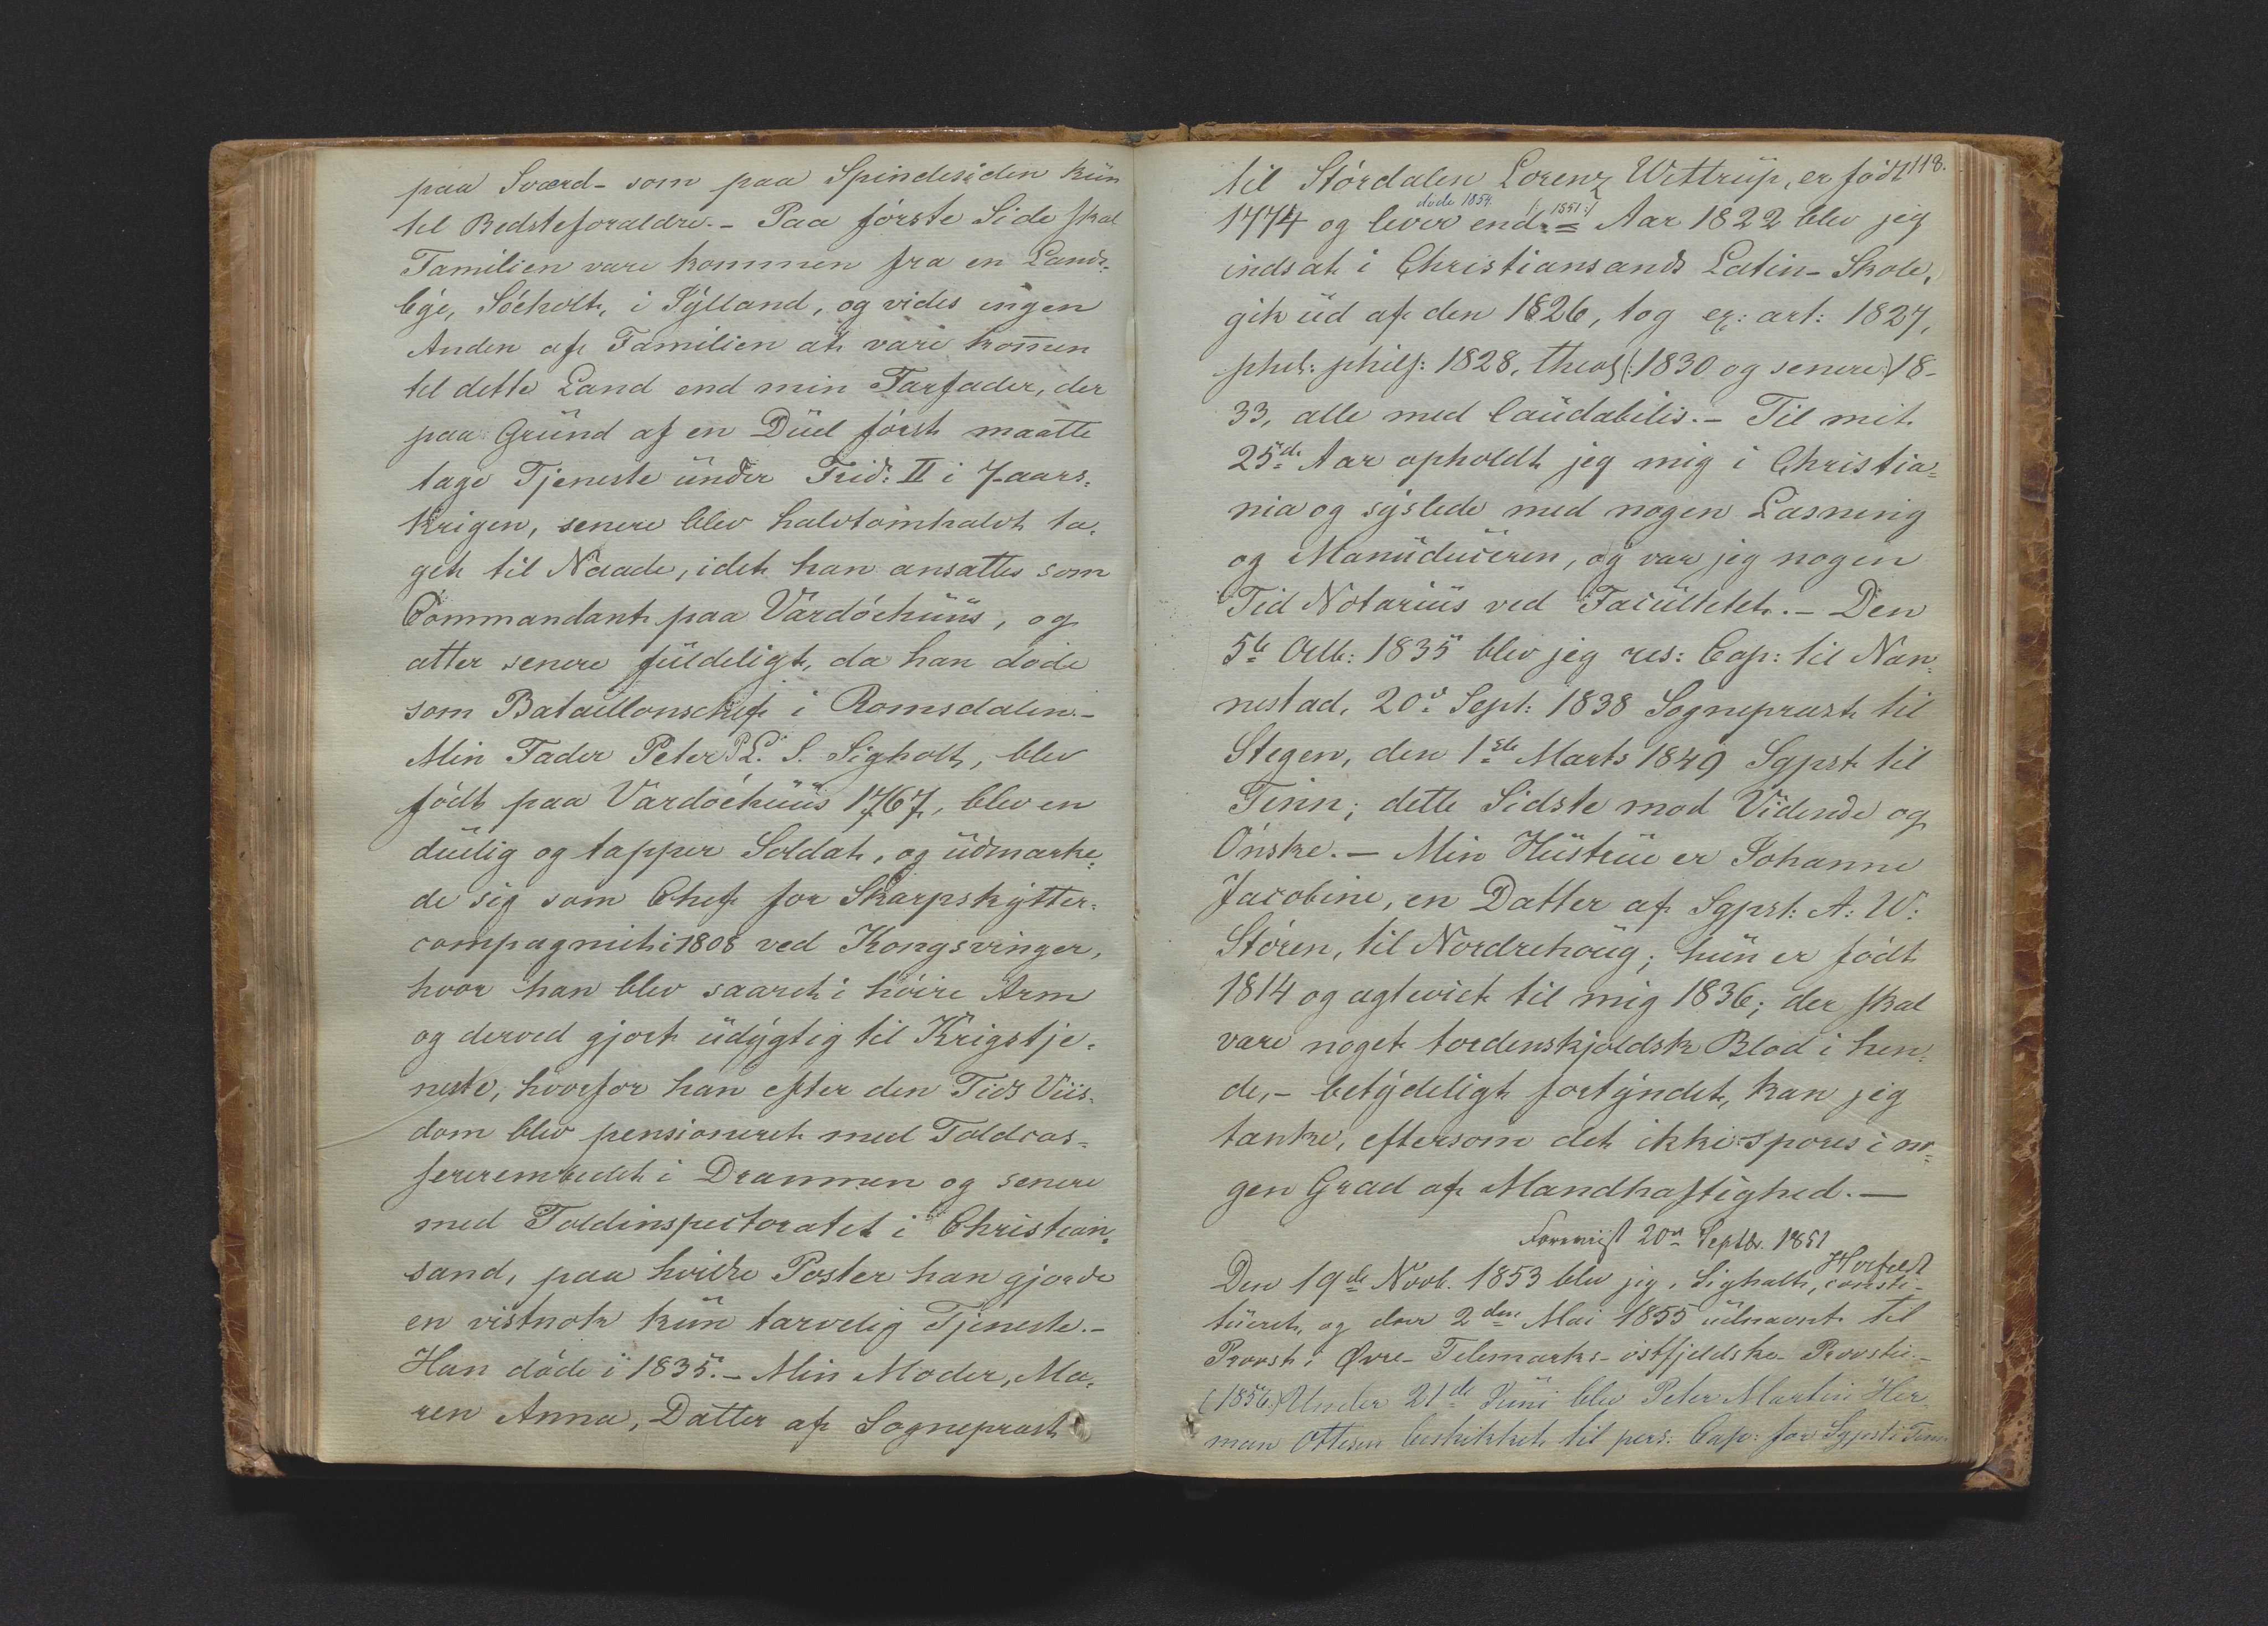 paa Sværd- som paa Spindesiden kün
til Bedsteforældre. - Paa første Side skal
Familien være kommen fra en Lands-
bye, Söeholt, i Jylland, og vides ingen
Anden af Familien at være kom̅en
til dette Land end min Farfader, der
paa Gründ af en Düel först maatte
tage Tjeneste ünder Frid: II i 7-aars-
krigen, senere blev halvtomhalvt ta-
get til Naade, idet han ansattes som
Commandant paa Vardöehüüs, og
atter senere füldeligt, da han döde
som Bataillonschef i Romsdalen. -
Min Fader Peter P. L. S. Sigholt, blev
födt paa Vardöehüüs 1767, blev en
düelig og tapper Soldat, og üdmærke-
de sig som Chef for Skarpskytter-
compagniet i 1808 ved Kongsvinger,
hvor han blev saaret i höire Arm
og derved gjort üdygtig til Krigstje-
neste, hvorfor han efter den Tids Viis-
dom blev pensioneret med Toldcas-
sererembedet i Drammen og senere
med Toldinspectoratet i Christian-
sand, paa hvilke Poster han gjorde
en vistnok kün tarvelig Tjeneste. -
Han döde i 1835. - Min Moder, Ma-
ren Anna, Datter af Sogneprest
118.
til Stördalen Lorenz Wittrüp, er födt
döde 1854. (: 1851 :)
1774 og lever end. = Aar 1822 blev jeg
indsat i Christiansands Latin-Skole,
gik üd af den 1826, tog ex: art: 1827,
phil: philos: 1828, theol (: 1830 og senere :) 18-
33, alle med laüdabilis. - Til mit
25de Aar opholdt jeg mig i Christia-
nia og syslede med nogen Læsning
og Manüdüceren, og var jeg nogen
Tid Notariüs ved Facültetet. - Den
5te Octb: 1835 blev jeg res: Cap: til Nan-
nestad, 20de Sept: 1838 Sogneprest til
Stegen, den 1ste Marts 1849 Sgpst til
Tinn; dette Sidste mod Vidende og
Önske. - Min Hüstrüe er Johanne
Jacobine, en Datter af Sgpst: A: W:
Stören, til Nordrehoüg; hün er födt
1814 og ægteviet til mig 1836; der skal
være noget tordenskjoldsk Blod i hen-
de, - betydeligt fortyndet, kan jeg
tænke, eftersom det ikke spores i no-
gen Grad af Mandhaftighed. -
Foreviist 20de Septbr. 1851
Den 19de Novb. 1853 blev jeg, Sigholt, consti-
tüeret, og den 2den Mai 1855 üdnævnt til
Provst i Øvre-Telemarks-östfjeldske Provstie. -
(1856) Ünder 21de Jüni blev Peter Martin Her-
man Ottesen beskikket til pers: Cap: for Sgpst i Tinn